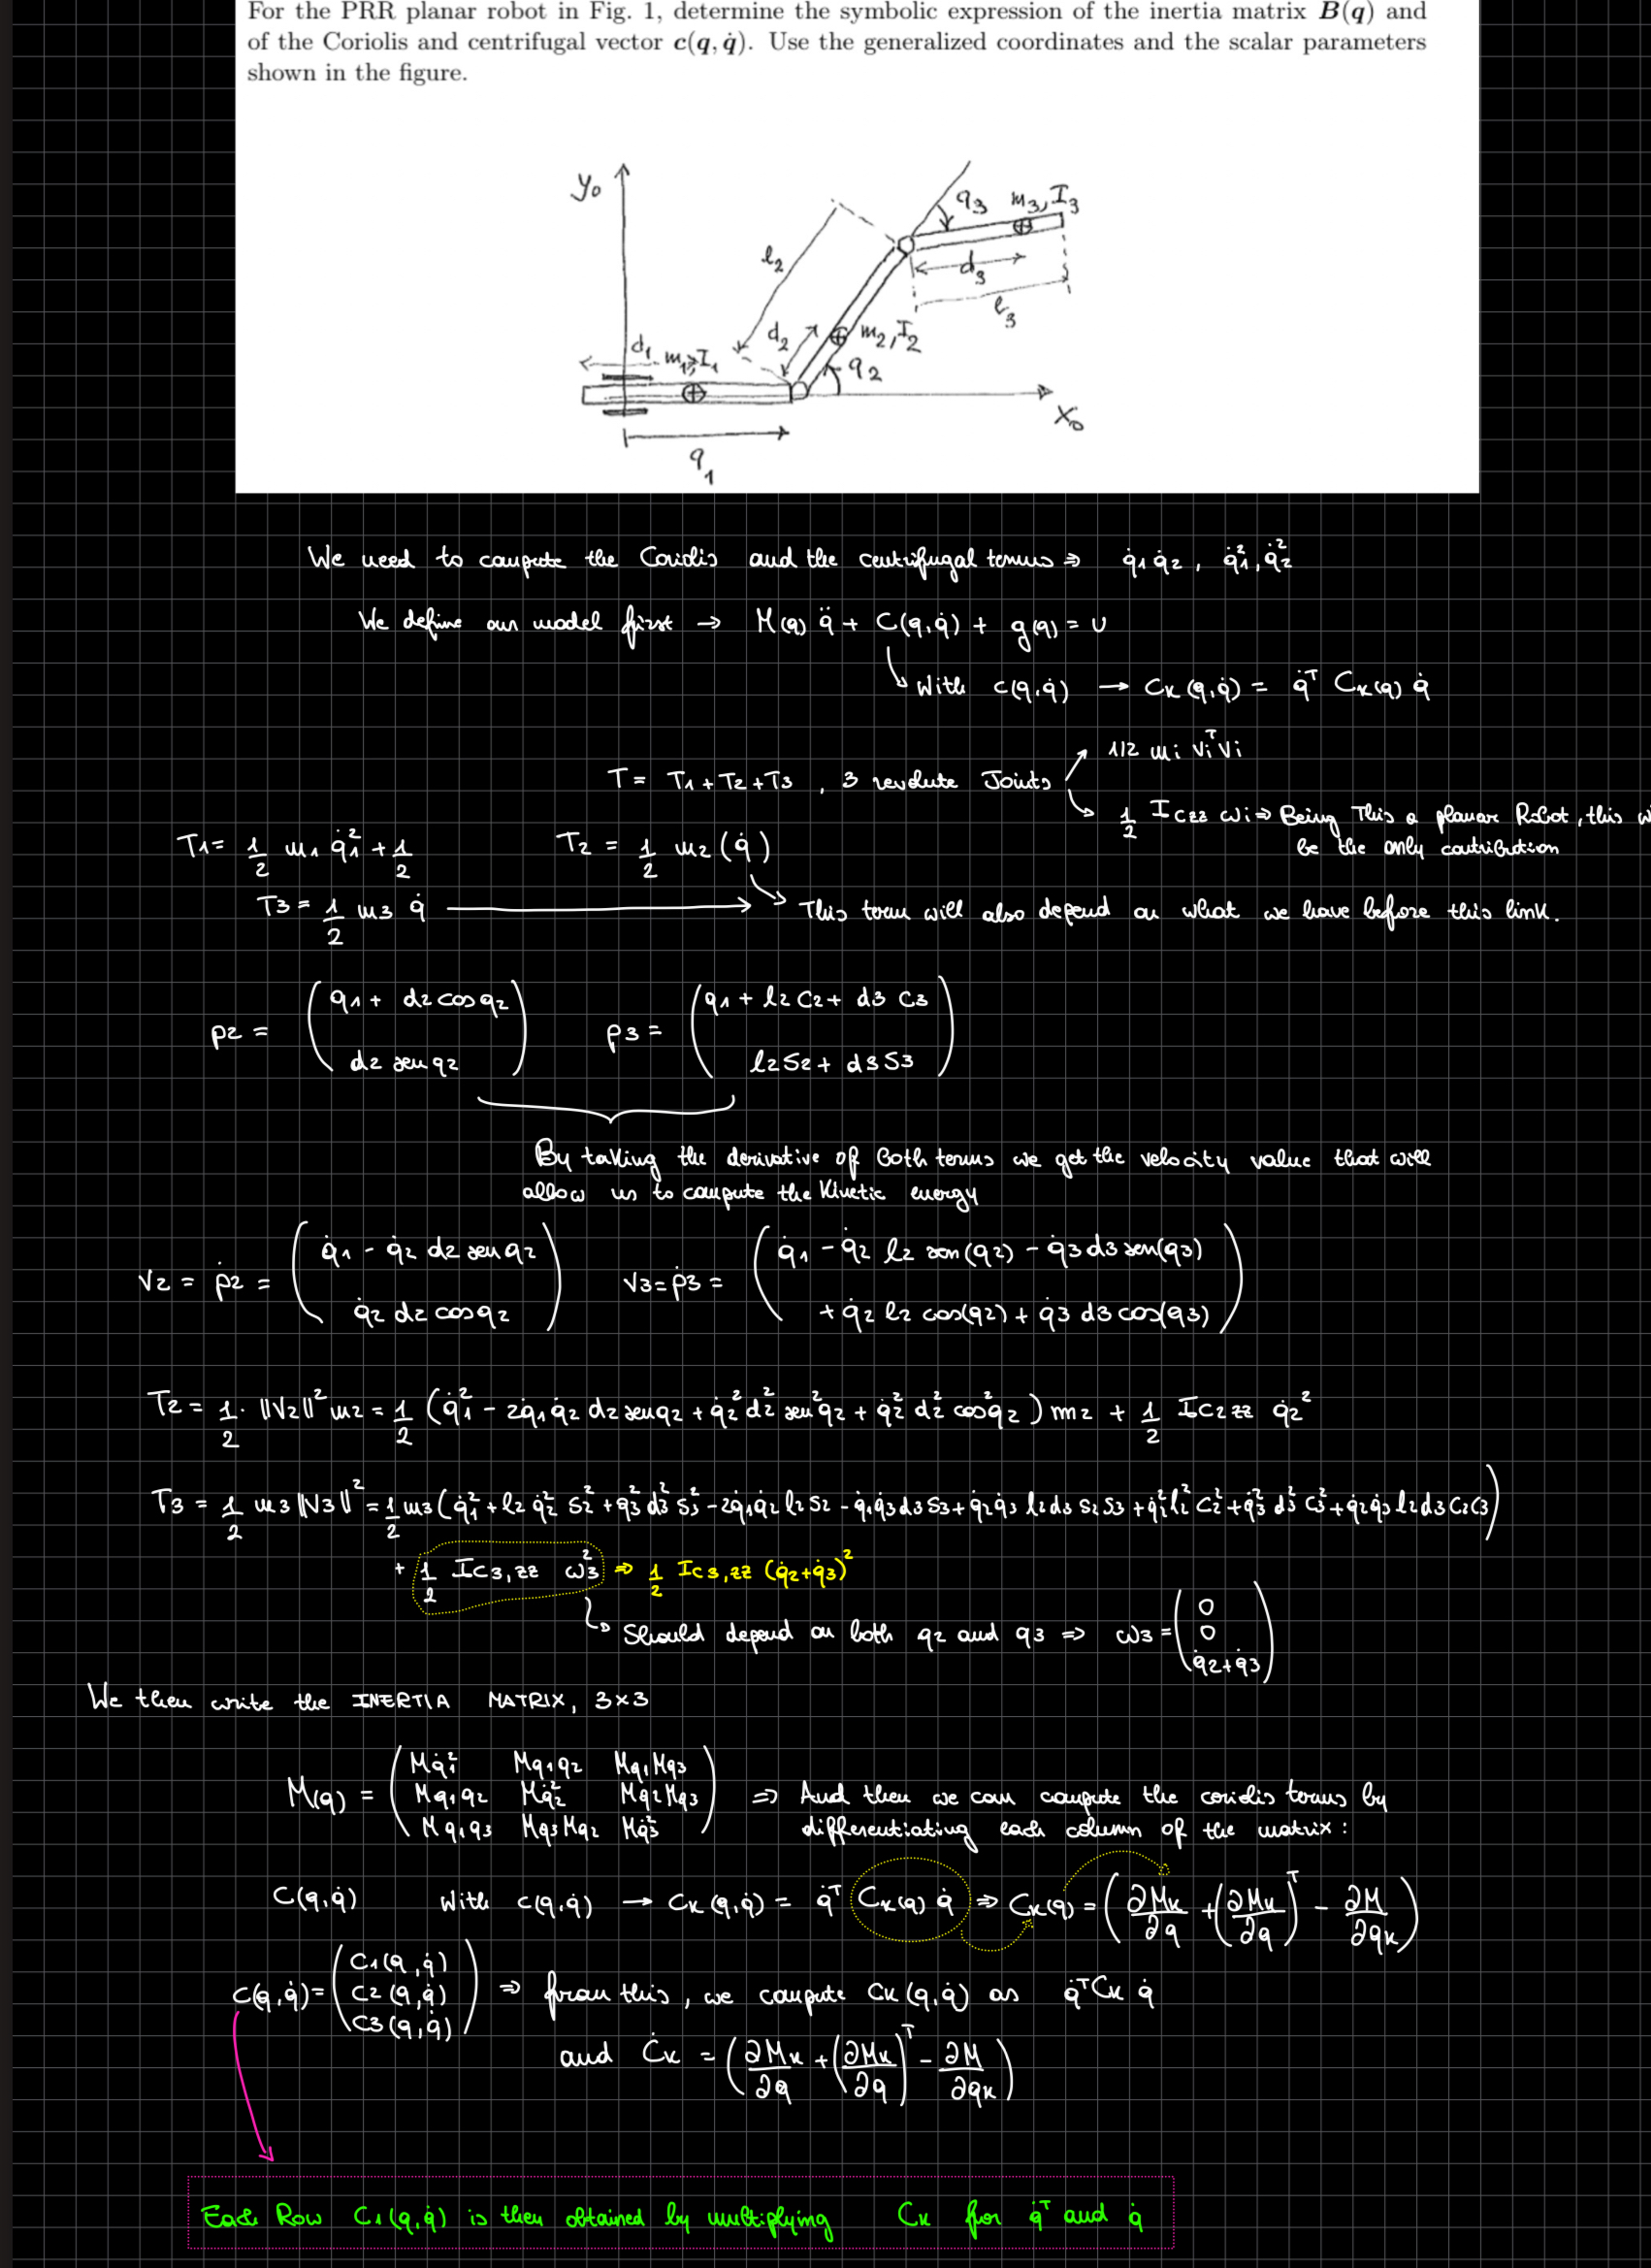 For the PRR planar robot in Fig. 1, determine the symbolic expression of the inertia matrix B(q) and
of the Coriolis and centrifugal vector c(q, q̇). Use the generalized coordinates and the scalar parameters
shown in the figure.
y₀
q₃
m₃, I₃
l₂
d₃
l₃
d₂
m₂, I₂
q₂
d₁ m₁, I₁
x₀
q₁
We need to compute the Coriolis and the centrifugal terms ⇒ q̇₁q̇₂, q̇₁², q̇₂²
We define our model first → M(q) q̈ + C(q,q̇) + g(q) = u
With c(q,q̇) → Cₖ(q,q̇) = q̇ᵀ Cₖ(q) q̇
1/2 mi viᵀ vi
T = T₁ + T₂ + T₃ , 3 revolute Joints
1/2 Iczz ωi ⇒ Being This a planar Robot, this w
be the only contribution
T₁ = 1/2 m₁ q̇₁² + 1/2
T₂ = 1/2 m₂ (q̇)
T₃ = 1/2 m₃ q̇
This term will also depend on what we have before this link.
p₂ = ( q₁ + d₂ cos q₂
d₂ sen q₂ )
p₃ = ( q₁ + l₂ c₂ + d₃ c₃
l₂ s₂ + d₃ s₃ )
By taking the derivative of both terms we get the velocity value that will
allow us to compute the Kinetic energy
v₂ = ṗ₂ = ( q̇₁ - q̇₂ d₂ sen q₂
q̇₂ d₂ cos q₂ )
v₃ = ṗ₃ = ( q̇₁ - q̇₂ l₂ sen(q₂) - q̇₃ d₃ sen(q₃)
+ q̇₂ l₂ cos(q₂) + q̇₃ d₃ cos(q₃) )
T₂ = 1/2 · ||v₂||² m₂ = 1/2 (q̇₁² - 2q̇₁q̇₂ d₂ sen q₂ + q̇₂² d₂² sen² q₂ + q̇₂² d₂² cos² q₂) m₂ + 1/2 Ic₂zz q̇₂²
T₃ = 1/2 m₃ ||v₃||² = 1/2 m₃ (q̇₁² + l₂ q̇₂² s₂² + q̇₃² d₃² s₃² - 2q̇₁q̇₂ l₂ s₂ - q̇₁q̇₃ d₃ s₃ + q̇₂q̇₃ l₂ d₃ s₂ s₃ + q̇₂² l₂² c₂² + q̇₃² d₃² c₃² + q̇₂q̇₃ l₂ d₃ c₂ c₃)
+ 1/2 Ic₃,zz ω₃² ⇒ 1/2 Ic₃,zz (q̇₂ + q̇₃)²
Should depend on both q₂ and q₃ ⇒ ω₃ = ( 0
0
q̇₂ + q̇₃ )
We then write the INERTIA MATRIX, 3×3
M(q) = ( Mq̇₁² Mq₁q₂ Mq₁Mq₃
Mq₁q₂ Mq̇₂² Mq₂Mq₃
Mq₁q₃ Mq₃Mq₂ Mq̇₃² )
⇒ And then we can compute the coriolis terms by
differentiating each column of the matrix:
C(q,q̇) With c(q,q̇) → Cₖ(q,q̇) = q̇ᵀ Cₖ(q) q̇ ⇒ Cₖ(q) = ( ∂Mₖ/∂q + (∂Mₖ/∂q)ᵀ - ∂M/∂qₖ )
c(q,q̇) = ( C₁(q,q̇)
C₂(q,q̇)
C₃(q,q̇) )
⇒ from this, we compute Cₖ(q,q̇) as q̇ᵀ Cₖ q̇
and Ċₖ = ( ∂Mₖ/∂q + (∂Mₖ/∂q)ᵀ - ∂M/∂qₖ )
Each Row C₁(q,q̇) is then obtained by multiplying Cₖ for q̇ᵀ and q̇